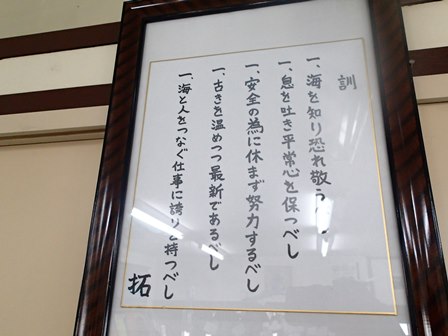 訓
一、海を知り恐れ敬う
一、息を吐き平常心を保つべし
一、安全の為に休まず努力するべし
一、古きを温めつつ最新であるべし
一、海と人をつなぐ仕事に誇りを持つべし
拓